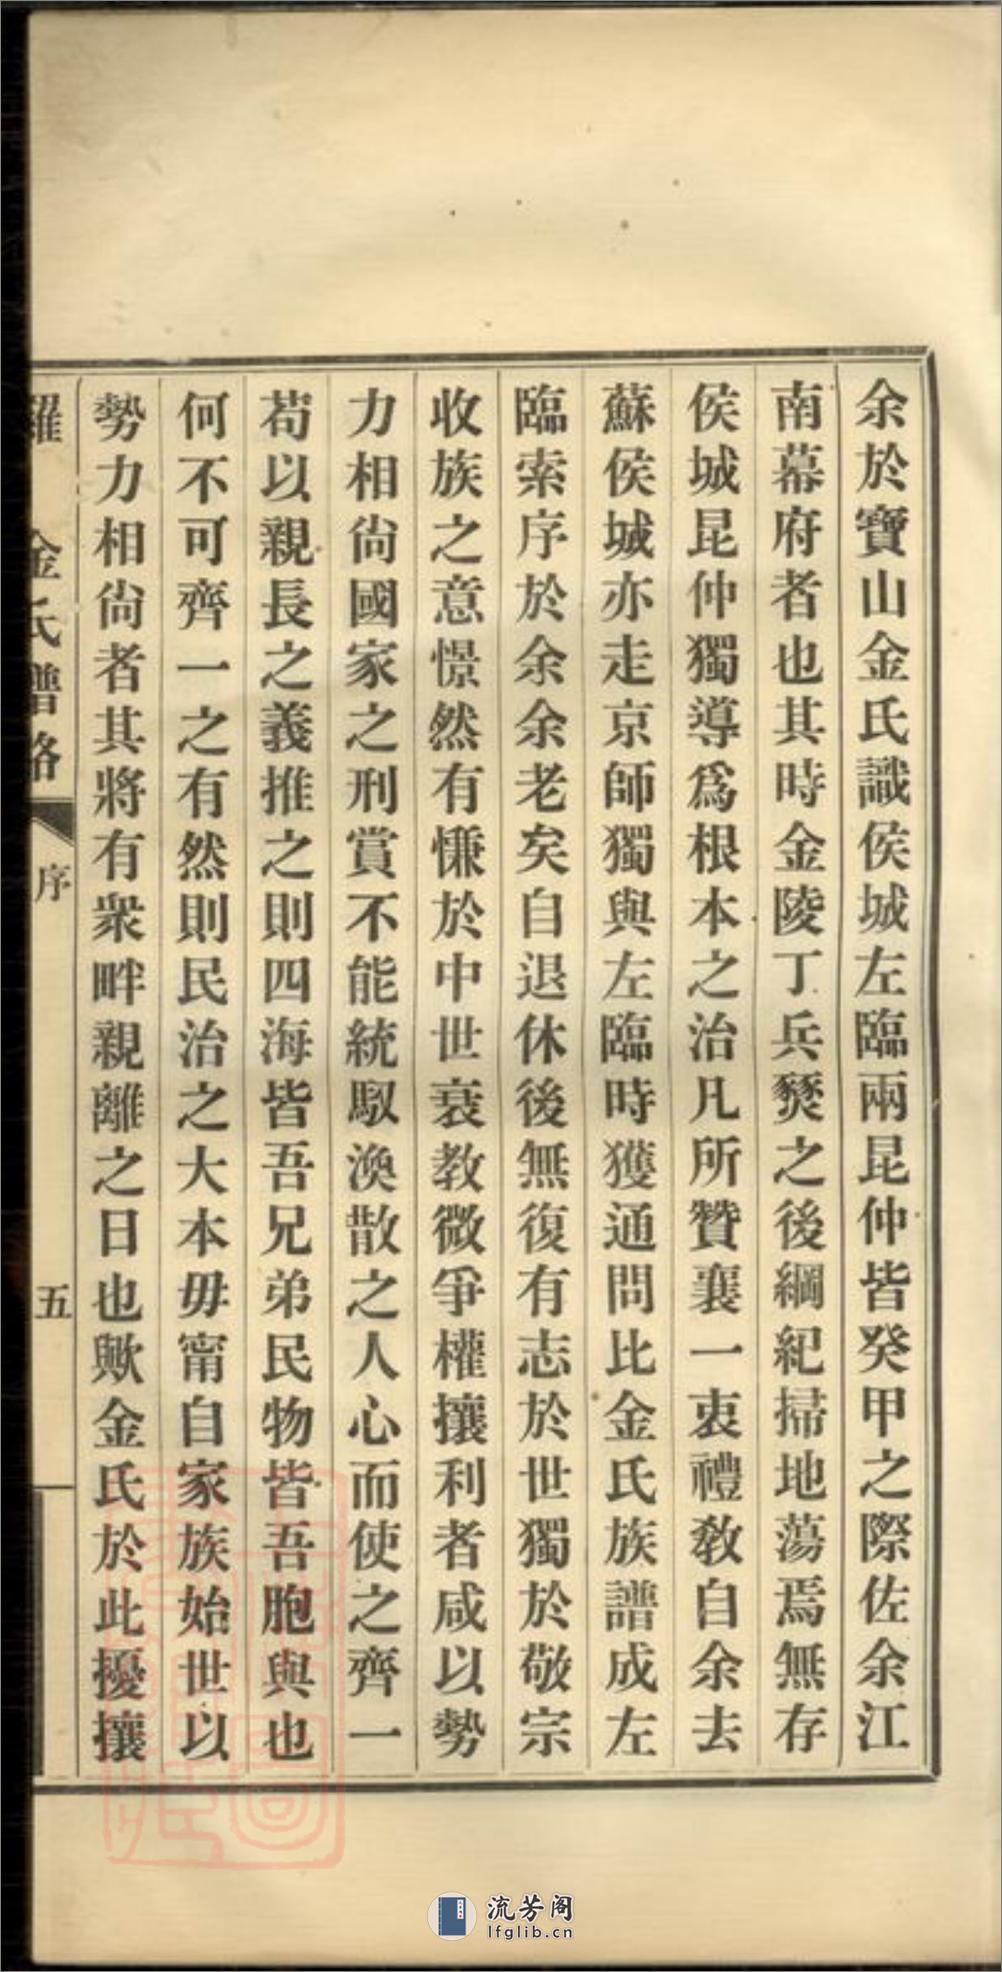 余於寶山金氏識侯城左臨兩昆仲皆癸甲之際佐余江
南幕府者也其時金陵丁兵燹之後綱紀掃地蕩焉無存
侯城昆仲獨導爲根本之治凡所贊襄一衷禮教自余去
蘇侯城亦走京師獨與左臨時獲通問比金氏族譜成左
臨索序於余余老矣自退休後無復有志於世獨於敬宗
收族之意憬然有慊於中世衰教微爭權攘利者咸以勢
力相尙國家之刑賞不能統馭渙散之人心而使之齊一
苟以親長之義推之則四海皆吾兄弟民物皆吾胞與也
何不可齊一之有然則民治之大本毋甯自家族始世以
勢力相尙者其將有衆畔親離之日也歟金氏於此擾攘
羅 金氏譜略 序 五
流芳阁
lfglib.cn